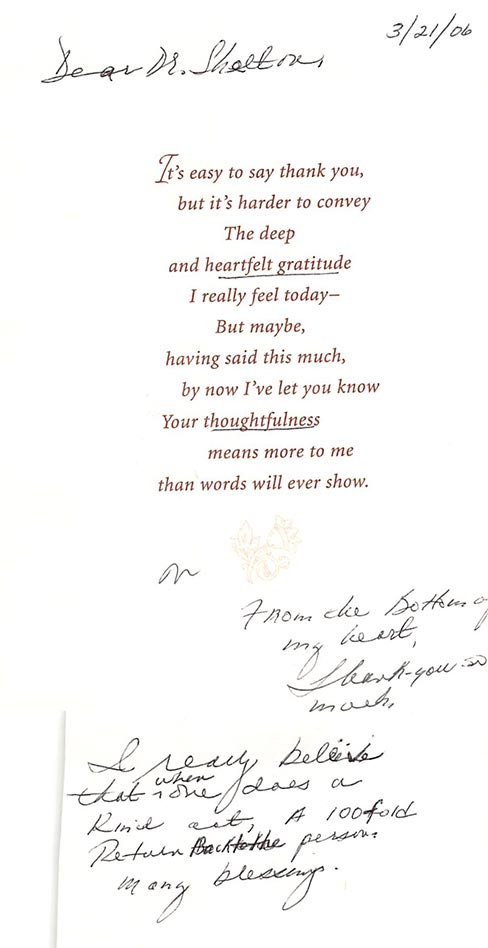 3/21/06
Dear DR. Shelton,
It's easy to say thank you,
but it's harder to convey
The deep
and heartfelt gratitude
I really feel today–
But maybe,
having said this much,
by now I've let you know
Your thoughtfulness
means more to me
than words will ever show.
From the bottom of
my heart,
Thank-you so
much,
I really believe
when
that one does a
Kind act, A 100fold
Return Back to the person.
many blessings.